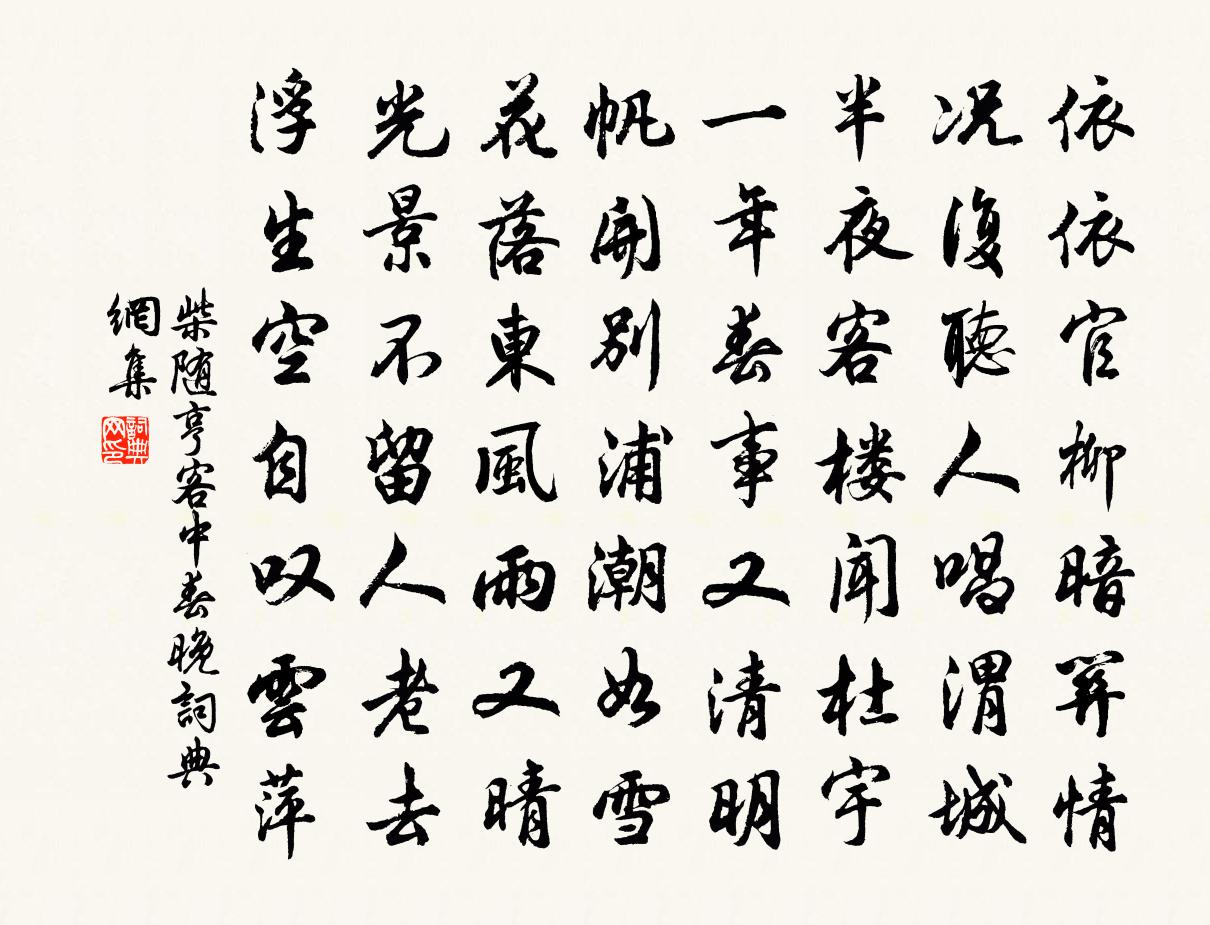 依依官柳暗関情
况復聽人唱渭城
半夜客楼聞杜宇
一年春事又清明
帆開別浦潮如雪
花落東風雨又晴
光景不留人老去
浮生空自叹雲萍
柴随亨客中春晚詞典
網集
詞典
网印